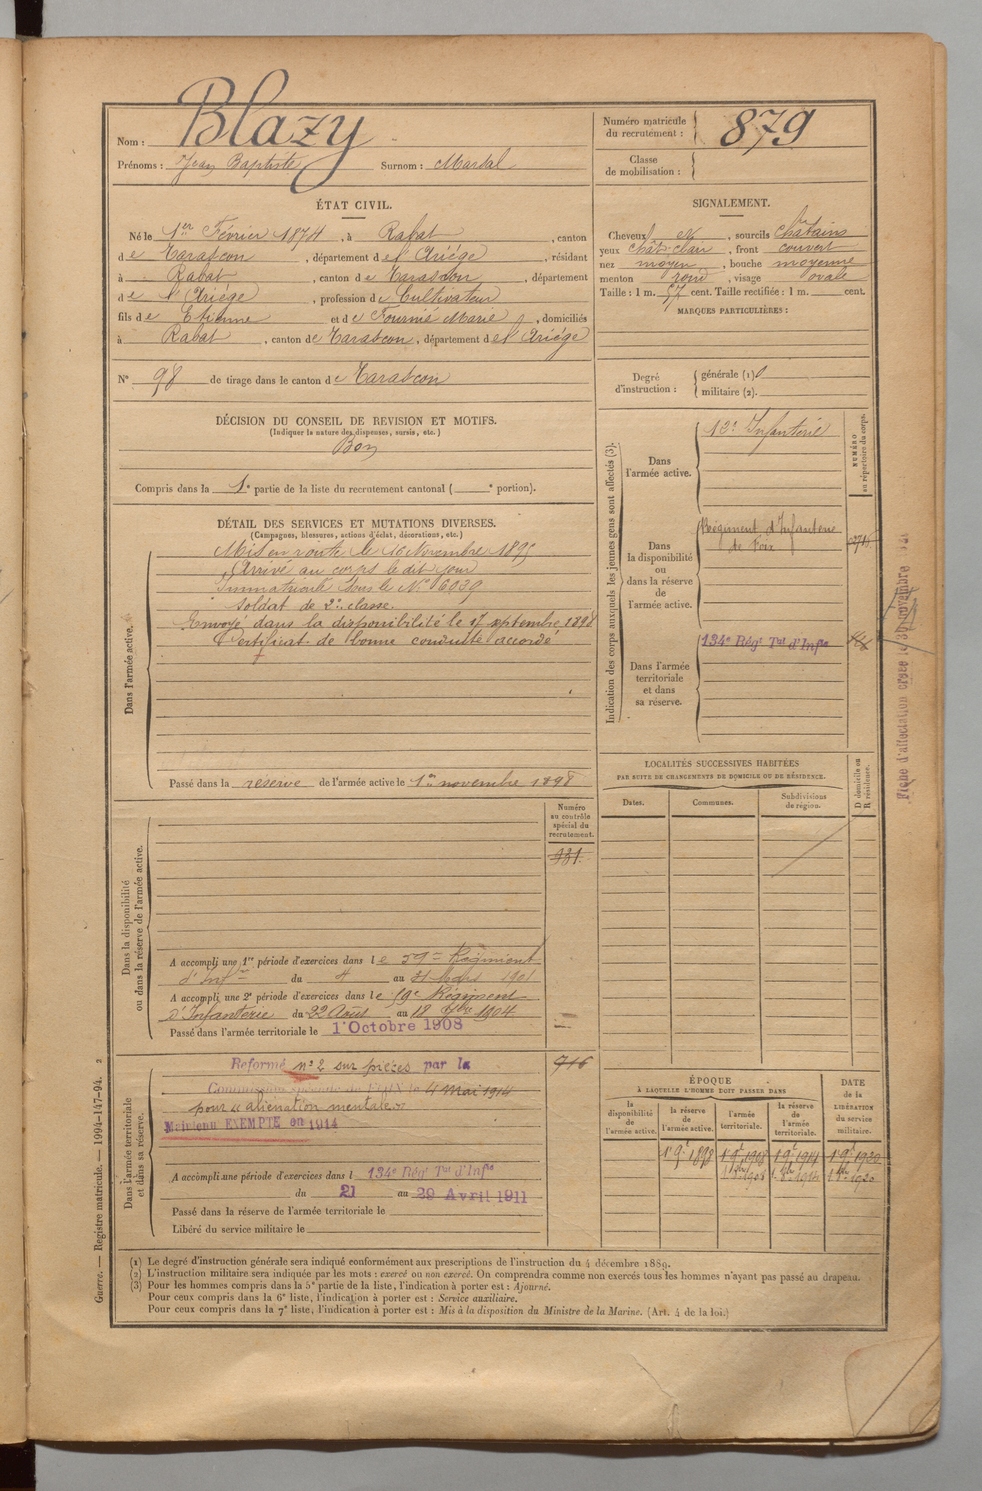 Nom : Blazy
Prénoms : Jean Baptiste Surnom : Mardal
Numéro matricule du recrutement : 879
Classe de mobilisation :
ÉTAT CIVIL.
Né le 1er Février 1874, à Rabat, canton
de Tarascon, département de l'Ariége, résidant
à Rabat, canton de Tarascon, département
de l'Ariége, profession de Cultivateur
fils de Etienne et de Fournié Marie, domiciliés
à Rabat, canton de Tarascon, département de l'Ariége
N° 98 de tirage dans le canton de Tarascon
SIGNALEMENT.
Cheveux et, sourcils châtains
yeux chât-clair, front couvert
nez moyen, bouche moyenne
menton rond, visage ovale
Taille : 1 m. 57 cent. Taille rectifiée : 1 m. cent.
MARQUES PARTICULIÈRES :
Degré d'instruction : générale (1)
militaire (2).
DÉCISION DU CONSEIL DE REVISION ET MOTIFS.
(Indiquer la nature des dispenses, sursis, etc.)
Bon
Compris dans la 1e partie de la liste du recrutement cantonal ( e portion).
DÉTAIL DES SERVICES ET MUTATIONS DIVERSES.
(Campagnes, blessures, actions d'éclat, décorations, etc.)
Dans l'armée active.
Mis en route le 16 Novembre 1895
Arrivé au corps le dit jour
Immatriculé sous le N° 6039
soldat de 2e classe.
Envoyé dans la disponibilité le 17 septembre 1898
Certificat de bonne conduite accordé
Passé dans la réserve de l'armée active le 1er novembre 1898
Indication des corps auxquels les jeunes gens sont affectés (3).
Dans l'armée active.
12e Infanterie
Dans la disponibilité ou dans la réserve de l'armée active.
Régiment d'Infanterie
de Foix
Dans l'armée territoriale et dans sa réserve.
134e Régt Tal d'Infie
NUMÉRO au répertoire du corps.
Fiche d'affectation créée le 30 novembre
LOCALITÉS SUCCESSIVES HABITÉES
PAR SUITE DE CHANGEMENTS DE DOMICILE OU DE RÉSIDENCE.
Dates. Communes. Subdivisions de région. D domicile ou R résidence.
Dans la disponibilité ou dans la réserve de l'armée active.
Numéro au contrôle spécial du recrutement.
931.
A accompli une 1re période d'exercices dans le 59me Régiment
d'Infie du 4 au 31 Mars 1901
A accompli une 2e période d'exercices dans le 59e Régiment
d'Infanterie du 22 Août au 18 7bre 1904
Passé dans l'armée territoriale le 1er Octobre 1908
Dans l'armée territoriale et dans sa réserve.
Reformé n° 2 sur pièces par la
Commission spéciale de FOIX le 4 mai 1914
pour "aliénation mentale"
Maintenu EXEMPTÉ en 1914
716
A accompli une période d'exercices dans l 134e Régt Tal d'Infie
du 21 au 29 Avril 1911
Passé dans la réserve de l'armée territoriale le
Libéré du service militaire le
ÉPOQUE
À LAQUELLE L'HOMME DOIT PASSER DANS
la disponibilité de l'armée active. la réserve de l'armée active. l'armée territoriale. la réserve de l'armée territoriale.
DATE de la LIBÉRATION du service militaire.
1 9e 1898 1 9e 1908 1 9e 1914 1 9e 1920
1 8bre 1908 1 8bre 1914 1 8bre 1920
(1) Le degré d'instruction générale sera indiqué conformément aux prescriptions de l'instruction du 4 décembre 1889.
(2) L'instruction militaire sera indiquée par les mots : exercé ou non exercé. On comprendra comme non exercés tous les hommes n'ayant pas passé au drapeau.
(3) Pour les hommes compris dans la 5e partie de la liste, l'indication à porter est : Ajourné.
Pour ceux compris dans la 6e liste, l'indication à porter est : Service auxiliaire.
Pour ceux compris dans la 7e liste, l'indication à porter est : Mis à la disposition du Ministre de la Marine. (Art. 4 de la loi.)
Guerre. — Registre matricule. — 1994-147-94. 2